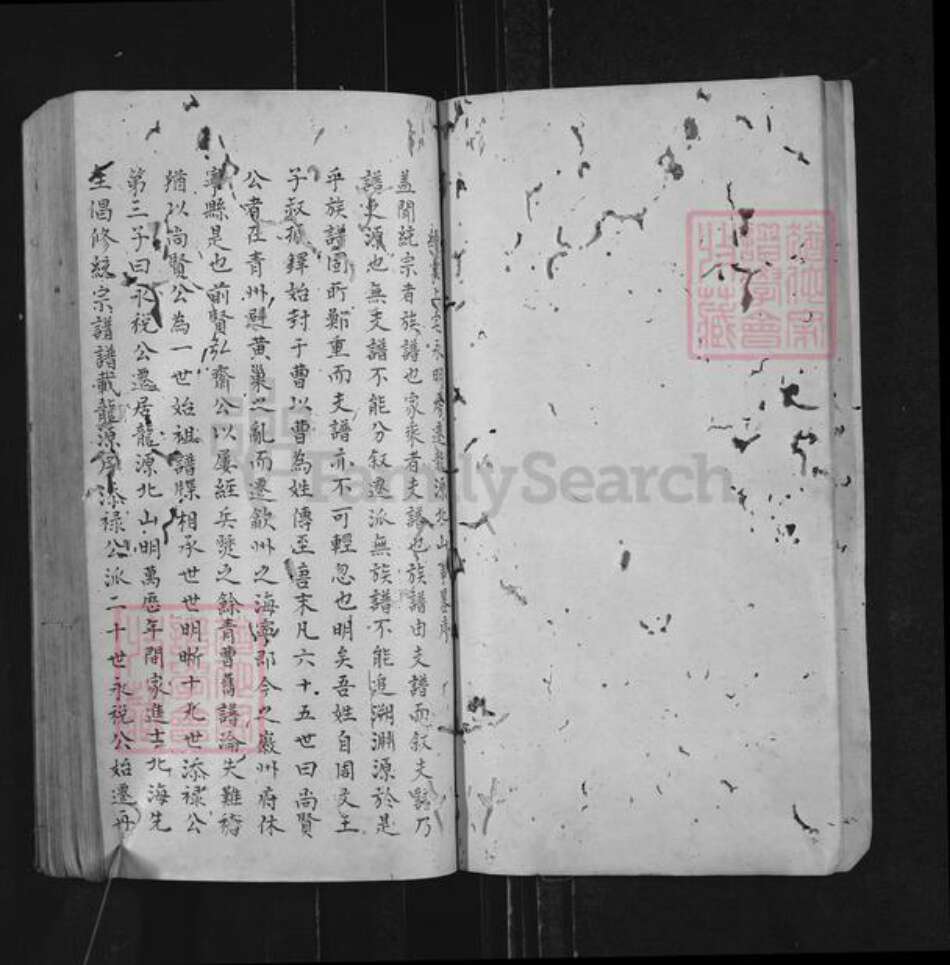 盖聞統宗者族譜也家乘者支譜也族譜由支譜而叙支譜乃
譜之源也無支譜不能分叙遷派無族譜不能追溯淵源於是
乎族譜固所鄭重而支譜亦不可輕忽也明矣吾姓自周文王
子叔振鐸始封于曹以曹為姓傳至唐末凡六十五世曰尚賢
公者在青州避黃巢之亂而遷歙州之海寧郡今之徽州府休
寧縣是也前賢弘齋公以屢經兵燹之餘青曹舊譜淪失難稽
以尚賢公為一世始祖譜牒相承世世明晰十九世添祿公
第三子曰永税公遷居龍源北山明萬曆年間家進士北海先
生倡修統宗譜譜載龍源 添祿公派二十世永税公始遷丹
FamilySearch